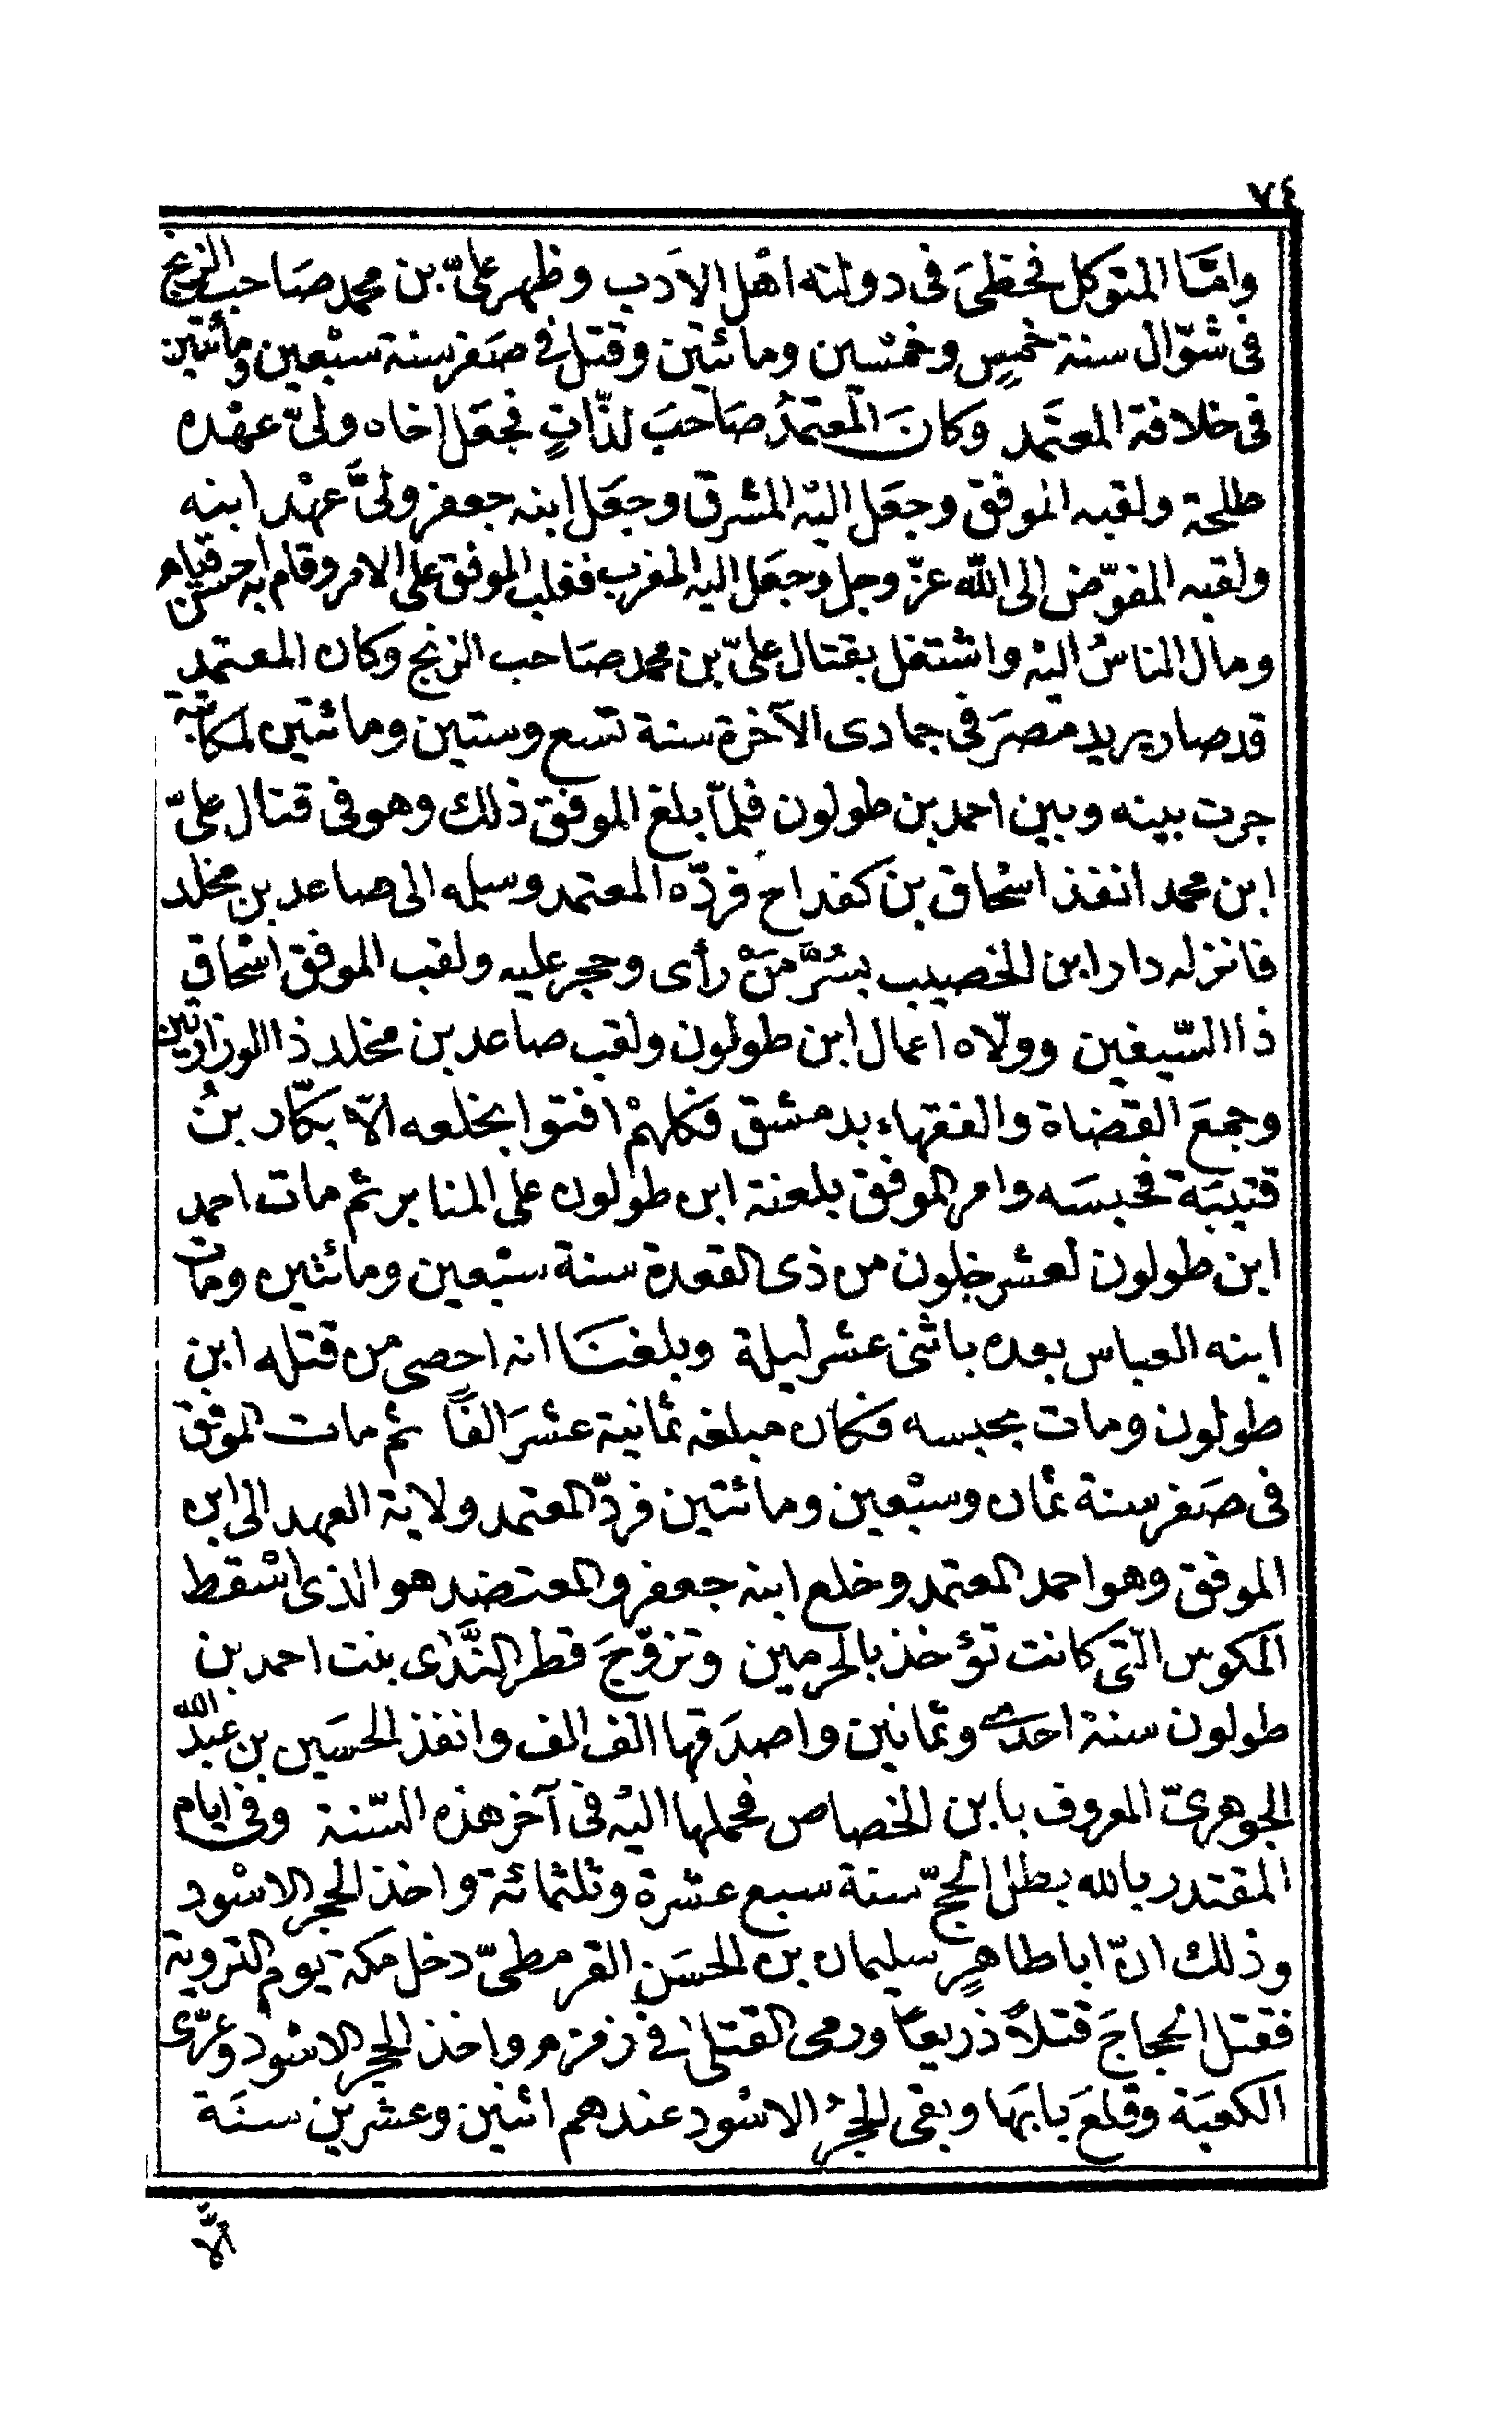 ٧٤
وامّا المتوكل فحظىَ فى دولته اهْل الاَدب وظهر علىّ بن محمد صَاحب الزنج
فى شوّال سنة خمسٍ وخمْسين ومائتين وقتل فى صَفر سنة سبْعين ومأتين
فى خلافة المعتَمد وَكانَ المعتمدُ صَاحبَ لذّاتٍ فجعَل اخاه ولىّ عهْده
طلحة ولقبه الموفق وجعَل اليْه المشرق وجعَل ابنه جعفر ولىَّ عهْد ابنه
ولقبه المفوّض الى الله عزّ وجل وجعَل اليه المغرب فغلب الموفق على الامر وقام به احسن قيام
ومال الناسُ اليْه واشتغل بقتال علىّ بن محمد صَاحب الزنج وكان المعتمد
قد صار يريد مصرَ فى جمادى الآخرة سنة تسع وستين ومائتين لمكاتبة
جرت بينه وبين احمد بن طولون فلمّا بلغ الموفق ذلك وهو فى قتال علىّ
ابن محمد انفذ اسْحاق بن كفداح فردّه المعتمد وسلمه الى صاعد بن مخلد
فانزله دار ابن الخصيب بسُرَّ مَنْ رأى وحجر عليه ولقب الموفق اسْحاق
ذا السّيفين وولّاه اعمال ابن طولون ولقب صاعد بن مخلد ذا الوزارتين
وجمعَ القضاة والفقهاء بدمشق فكلهمْ افتوا بخلعه الّا بكّار بنُ
قتيبَة فحبسَه وامر الموفق بلعنة ابن طولون على المنابر ثم مات احمد
ابن طولون لعشر خلون من ذى القعدة سنة سبْعين ومائتين ومات
ابنه العباس بعده باثنى عشر ليلة وبلغنَا انه احصى من قتله ابن
طولون ومات بحبسه فكان مبلغه ثمانية عشَر الفاً ثم مات الموفق
فى صَفر سنة ثمان وسبْعين ومائتين فردّ المعتمد ولاية العهد الى ابن
الموفق وهو احمد المعتمد وخلع ابنه جعفر والمعتضد هو الذى اسْقط
المكوس الّتى كانت تؤخذ بالحرمين وتزوّجَ قطر النَّدٰى بنت احمد بن
طولون سنة احدَى وثمانين واصدَقها الف الف وانفذ الحسَين بن عبد الله
الجوهرىّ المعروف بابن الخصاص فحملها اليْه فى آخر هذه السّنة وفى ايام
المقتدر بالله بطل الحجّ سنة سبع عشرة وثلثمائة واخذ الحجر الاسْود
وذلك انّ ابا طاهرٍ سليمان بن الحسَن القرمطىّ دخل مكة يوم التروية
فقتل الحجاجَ قتلاً ذريعاً ورمى القتلىٰ فى زمزم واخذ الحجر الاسْود وعرّى
الكعبَة وقلعَ بابَها وبقى الحجرُ الاسْود عندهم اثنين وعشرين سنَة
الّا